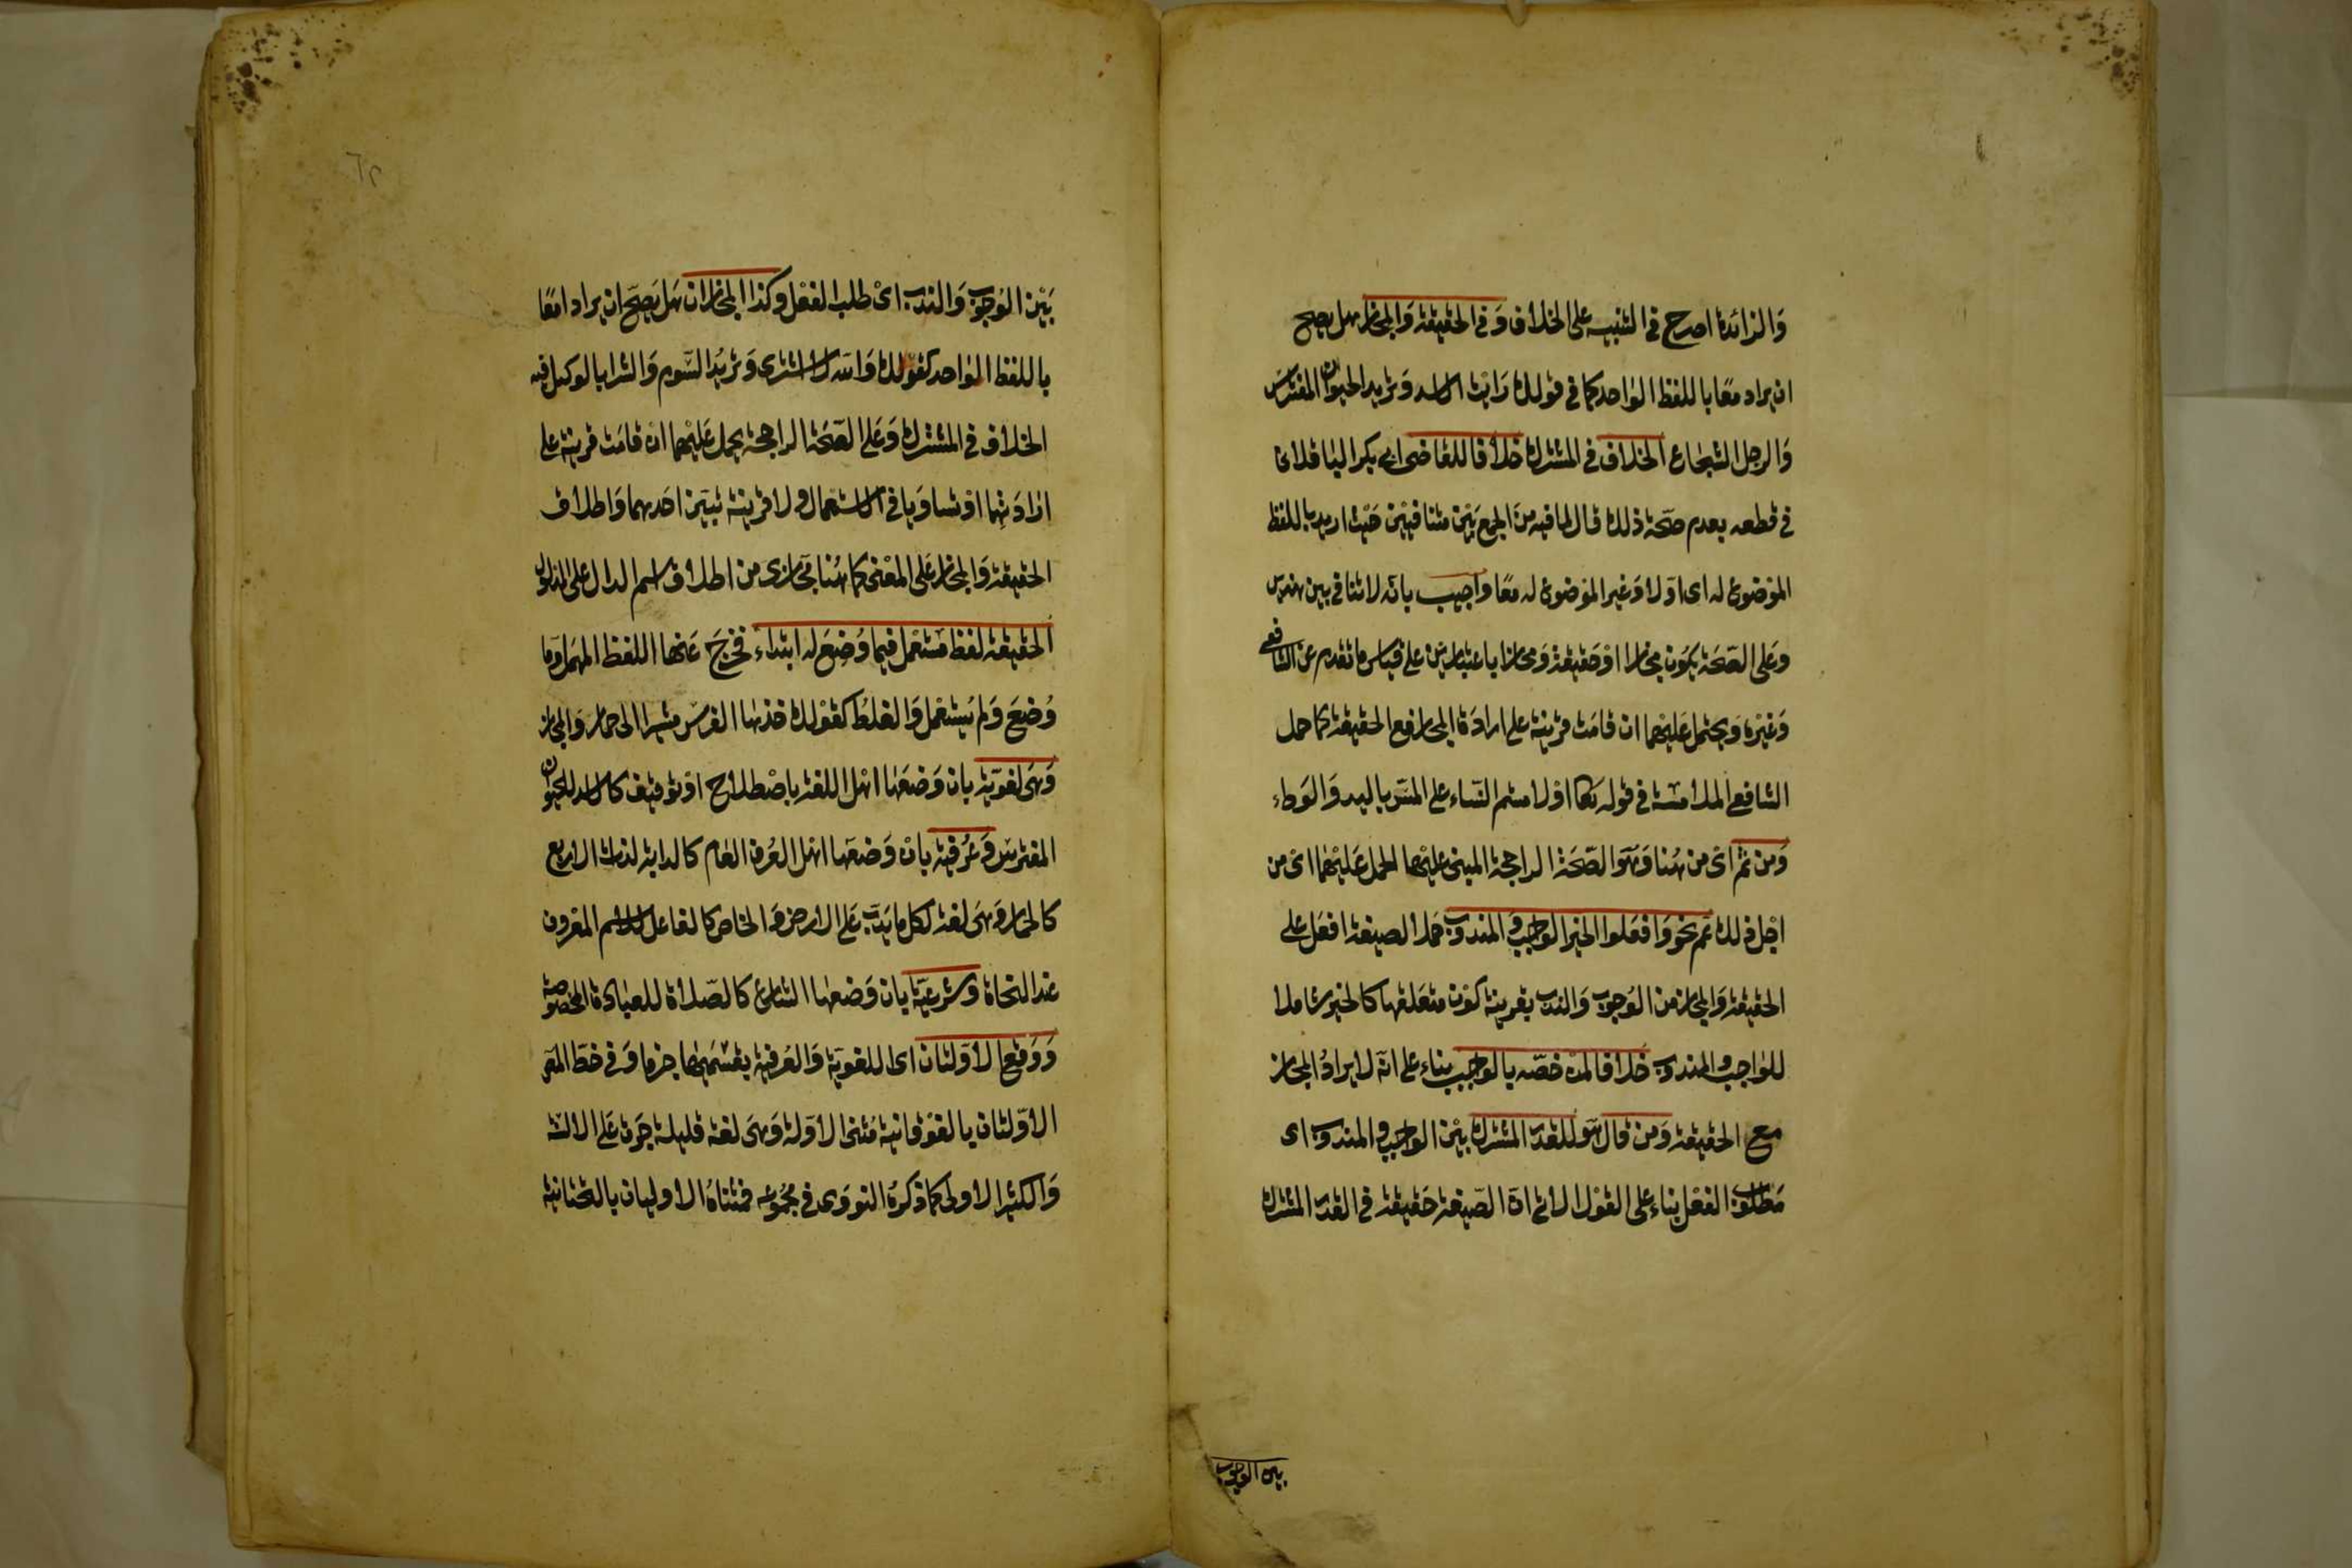 والزائدة اصرح في التنبيه على الخلاف وفي الحقيقة والمجاز هل يصح
ان يراد معا باللفظ الواحد كما في قولك رايت الاسد وتريد الحيوان المفترس
والرجل الشجاع الخلاف في المشترك خلافا للقاضي ابي بكر الباقلاني
في قطعه بعدم صحة ذلك قال لما فيه من الجمع بين متنافيين حيث اريد باللفظ
الموضوع له اي اولا وغير الموضوع له معا واجيب بانه لا تنافي بين هذين
وعلى الصحة يكون مجازا او حقيقة ومجازا باعتبارين على قياس ما تقدم عن الشافعي
وغيره ويحتمل عليهما ان قامت قرينة على ارادة المجاز مع الحقيقة كما حمل
الشافعي الملامسة في قوله تعالى او لامستم النساء على المس باليد والوطء
ومن ثم اي من هنا وهو الصحة الراجحة المبني عليها الحمل عليهما اي من
اجل ذلك عم نحو وافعلوا الخير الواجب والمندوب حملا لصيغة افعل على
الحقيقة والمجاز من الوجوب والندب بقرينة كون متعلقها كالخير شاملا
للواجب والمندوب خلافا لمن خصه بالواجب بناء على انه لا يراد المجاز
مع الحقيقة ومن قال هو للقدر المشترك بين الواجب والمندوب اي
مطلوب الفعل بناء على القول الاتي ان الصيغة حقيقة في القدر المشترك
بين الوجوب
بين الوجوب والندب اي طلب الفعل وكذا المجازان هل يصح ان يرادا معا
باللفظ الواحد كقولك والله لا اشتري وتريد السوم والشرا بالوكيل فيه
الخلاف في المشترك وعلى الصحة الراجحة يحمل عليهما ان قامت قرينة على
ارادتهما او تساويا في الاستعمال ولا قرينة تبين احدهما واطلاق
الحقيقة والمجاز على المعنى كما هنا مجازى من اطلاق اسم الدال على المدلول
الحقيقة لفظ مستعمل فيما وضع له ابتداء فخرج عنها اللفظ المهمل وما
وضع ولم يستعمل والغلط كقولك خذ هذا الفرس مشيرا الى حمار والمجاز
وهي لغوية بان وضعها اهل اللغة باصطلاح او توقيف كالاسد للحيوان
المفترس وعرفية بان وضعها اهل العرف العام كالدابة لذات الاربع
كالحمار وهي لغة لكل ما يدب على الارض والخاص كالفاعل للاسم المعروف
عند النحاة وشرعية بان وضعها الشارع كالصلاة للعبادة المخصوصة
ووقع الاولتان اي اللغوية والعرفية بقسميها جزما وفي خط المص
الاولتان بالفوقانية مثنى الاولة وهي لغة قليلة جرت على الالسنة
والكثير الاولى كما ذكره النووي في مجموعه فمثناه الاوليان بالتحتانية